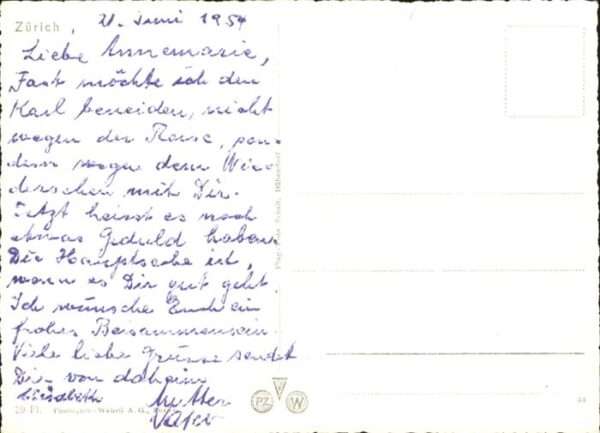 Zürich, 21. Juni 1954
Liebe Annemarie,
Fast möchte ich den
Karl beneiden, nicht
wegen der Reise, son-
dern wegen dem Wie-
dersehen mit Dir.
Jetzt heisst es noch
etwas Geduld haben.
Die Hauptsache ist,
wenn es Dir gut geht.
Ich wünsche Euch ein
frohes Beisammensein.
Viele liebe Grüsse sendet
Dir von daheim
Elisabeth Mutter
Vater
PZ W